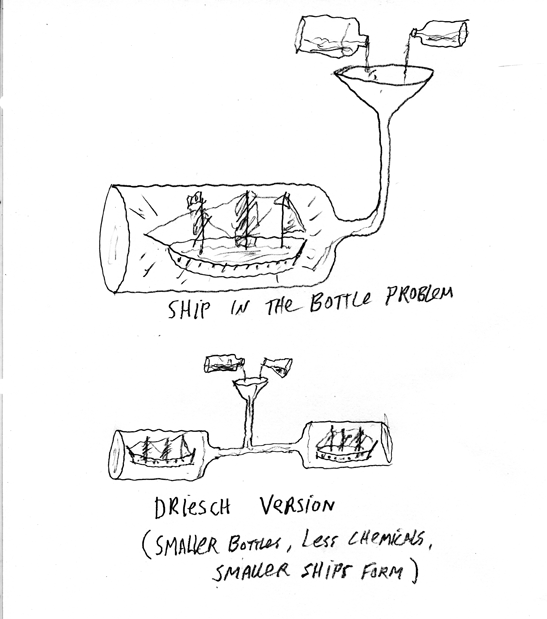 SHIP IN THE BOTTLE PROBLEM
DRIESCH VERSION
(SMALLER BOTTLES, LESS CHEMICALS,
SMALLER SHIPS FORM)